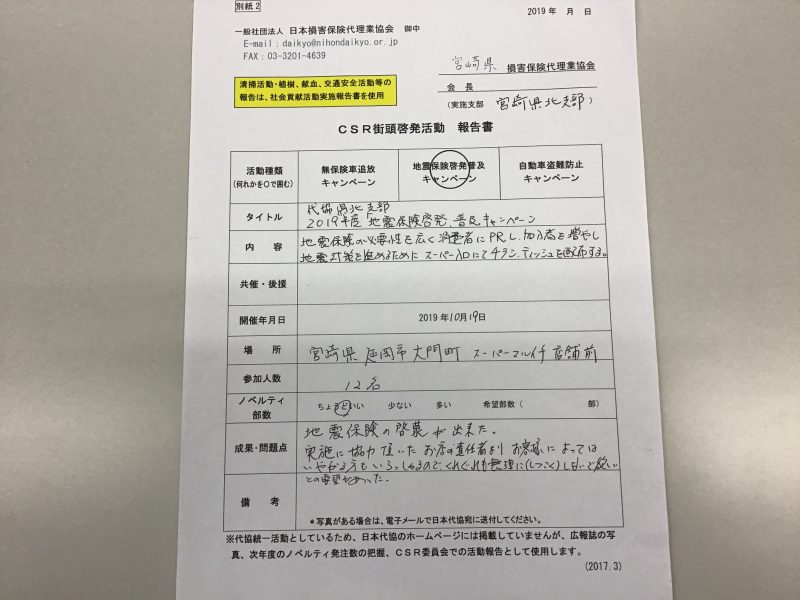 別紙2
2019年 月 日
一般社団法人 日本損害保険代理業協会 御中
E-mail:daikyo@nihondaikyo.or.jp
FAX:03-3201-4639
宮崎県 損害保険代理業協会
清掃活動・植樹、献血、交通安全活動等の
報告は、社会貢献活動実施報告書を使用
会 長
(実施支部 宮崎県北支部)
CSR街頭啓発活動 報告書
活動種類
(何れかを〇で囲む)
無保険車追放
キャンペーン
地震保険啓発普及
キャンペーン
自動車盗難防止
キャンペーン
タイトル
代協県北支部
2019年度「地震保険啓発、普及キャンペーン
内 容
地震保険の必要性を広く消費者にPRし、加入者を増やし
地震対策を進めるために スーパー入口にてチラシ、ティッシュを配布する。
共催・後援
開催年月日
2019年10月19日
場 所
宮崎県 延岡市 大門町 スーパーマル イチ 店舗前
参加人数
12名
ノベルティ
部数
ちょうどいい 少ない 多い 希望部数( 部)
成果・問題点
地震保険の啓蒙が出来た。
実施に協力頂いた お店の責任者より お客様によっては
いやがる方もいらっしゃるのでくれぐれも無理に(しつこく)しないで欲しい
との要望があった。
備 考
*写真がある場合は、電子メールで日本代協宛に送付してください。
※代協統一活動としているため、日本代協のホームページには掲載していませんが、広報誌の写
真、次年度のノベルティ発注数の把握、CSR委員会での活動報告として使用します。
(2017.3)